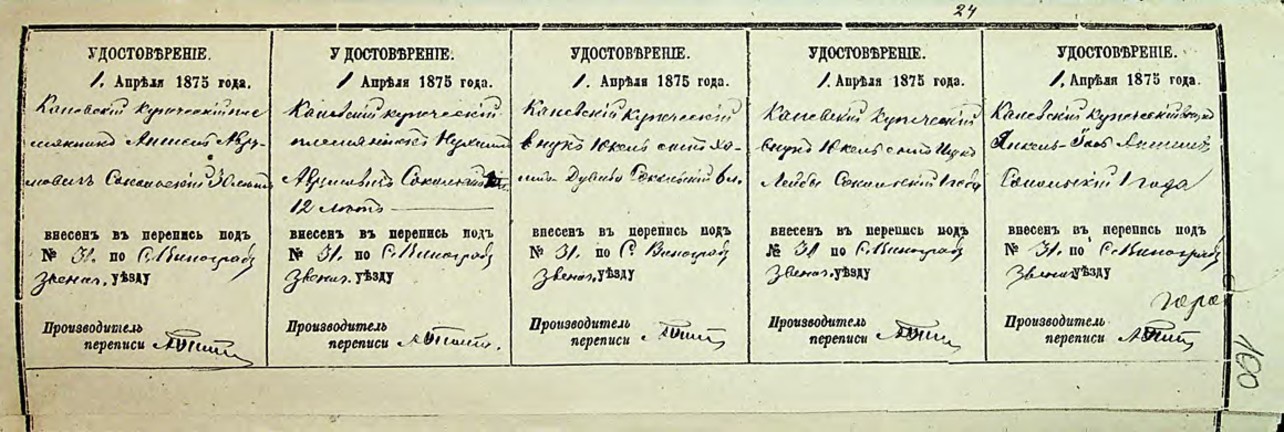 24
УДОСТОВѢРЕНІЕ.
1. Апрѣля 1875 года.
Каневскій купеческій пле
мянникъ Аншель Авру
мовичъ Сокольскій 30 лѣтъ
внесенъ въ перепись подъ
№ 31. по С. Виноградъ
Звениг. уѣзду
Производитель
переписи
УДОСТОВѢРЕНІЕ.
1 Апрѣля 1875 года.
Каневскій купеческій
племянникъ Нухимъ
Аврумовичъ Сокольскій
12 лѣтъ
внесенъ въ перепись подъ
№ 31. по С. Виноградъ
Звениг. уѣзду
Производитель
переписи
УДОСТОВѢРЕНІЕ.
1. Апрѣля 1875 года.
Каневскій купеческій
внукъ Юкель сынъ Хо
Дувида Сокольскій 6 л.
внесенъ въ перепись подъ
№ 31. по С. Виноградъ
Звениг. уѣзду
Производитель
переписи
УДОСТОВѢРЕНІЕ.
1 Апрѣля 1875 года.
Каневскій купеческій
внукъ Юкель сынъ Ицко
Лейбы Сокольскій 1 года
внесенъ въ перепись подъ
№ 31 по С. Виноградъ
Звениг. уѣзду
Производитель
переписи
УДОСТОВѢРЕНІЕ.
1, Апрѣля 1875 года.
Каневскій купеческій внукъ
Янкель Аншел
Сокольскій 1 года
внесенъ въ перепись подъ
№ 31. по С. Виноградъ
Звениг. уѣзду
Производитель
переписи
100